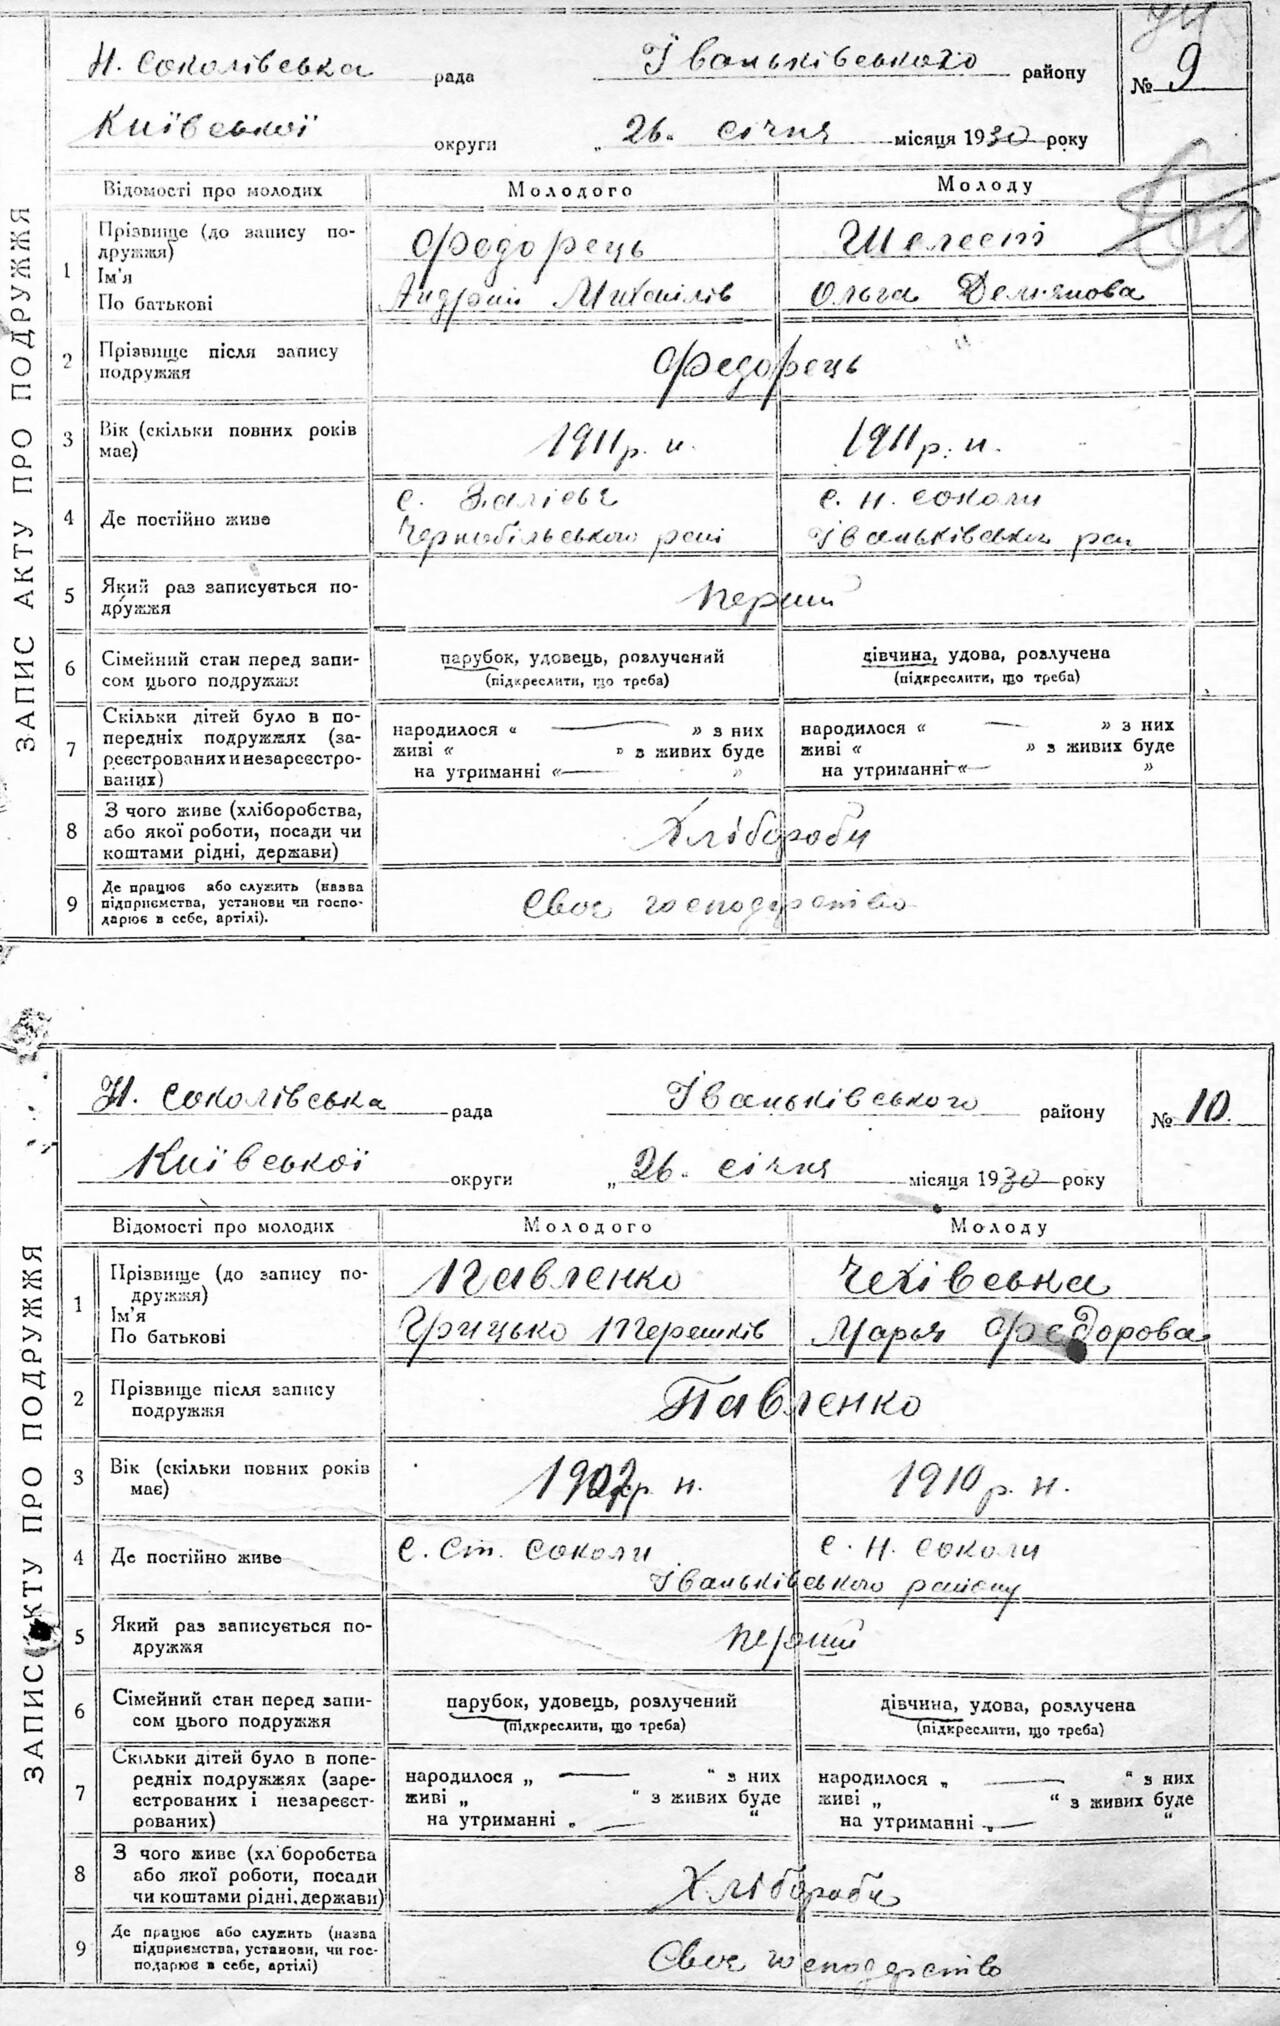 ЗАПИС АКТУ ПРО ПОДРУЖЖЯ
Н. Соколівська рада Іваньківського району № 9
Київської округи „ 26. січня місяця 1930 року
Відомості про молодих Молодого Молоду
1 Прізвище (до запису по-
дружжя)
Ім'я
По батькові
Федорець Шелест
Андрій Михайлів Ольга Демянова
2 Прізвище після запису
подружжя
Федорець
3 Вік (скільки повних років
має)
1911 р. н. 1911 р. н.
4 Де постійно живе
с. с. Н. Соколи
Чернобільського рай Іваньківськ рай
5 Який раз записується по-
дружжя
перший
6 Сімейний стан перед запи-
сом цього подружжя
парубок, удовець, розлучений дівчина, удова, розлучена
(підкреслити, що треба) (підкреслити, що треба)
7 Скільки дітей було в по-
передніх подружжях (за-
реєстрованих и незареєстро-
ваних)
народилося « — » з них народилося « — » з них
живі « » з живих буде живі « » з живих буде
на утриманні «— » на утриманні «— »
8 З чого живе (хліборобства,
або якої роботи, посади чи
коштами рідні, держави)
Хлібороби
9 Де працює або служить (назва
підприємства, установи чи госпо-
дарює в себе, артілі).
Своє господарство
ЗАПИС АКТУ ПРО ПОДРУЖЖЯ
Н. Соколівська рада Іваньківського району № 10.
Київської округи „ 26. січня місяця 1930 року
Відомості про молодих Молодого Молоду
1 Прізвище (до запису по-
дружжя)
Ім'я
По батькові
Павленко Чехівська
Грицько Терешків Марья Федорова
2 Прізвище після запису
подружжя
Павленко
3 Вік (скільки повних років
має)
р. н. 1910 р. н.
4 Де постійно живе
с. Ст. Соколи с. Н. Соколи
Іваньківського району
5 Який раз записується по-
дружжя
перший
6 Сімейний стан перед запи-
сом цього подружжя
парубок, удовець, розлучений дівчина, удова, розлучена
(підкреслити, що треба) (підкреслити, що треба)
7 Скільки дітей було в попе-
редніх подружжях (заре-
єстрованих і незареєст-
рованих)
народилося „ — “ з них народилося „ — “ з них
живі „ “ з живих буде живі „ “ з живих буде
на утриманні „ — “ на утриманні „— “
8 З чого живе (хл боробства
або якої роботи, посади
чи коштами рідні, держави)
Хлібороби
9 Де працює або служить (назва
підприємства, установи, чи гос-
подарює в себе, артілі)
Своє господарство